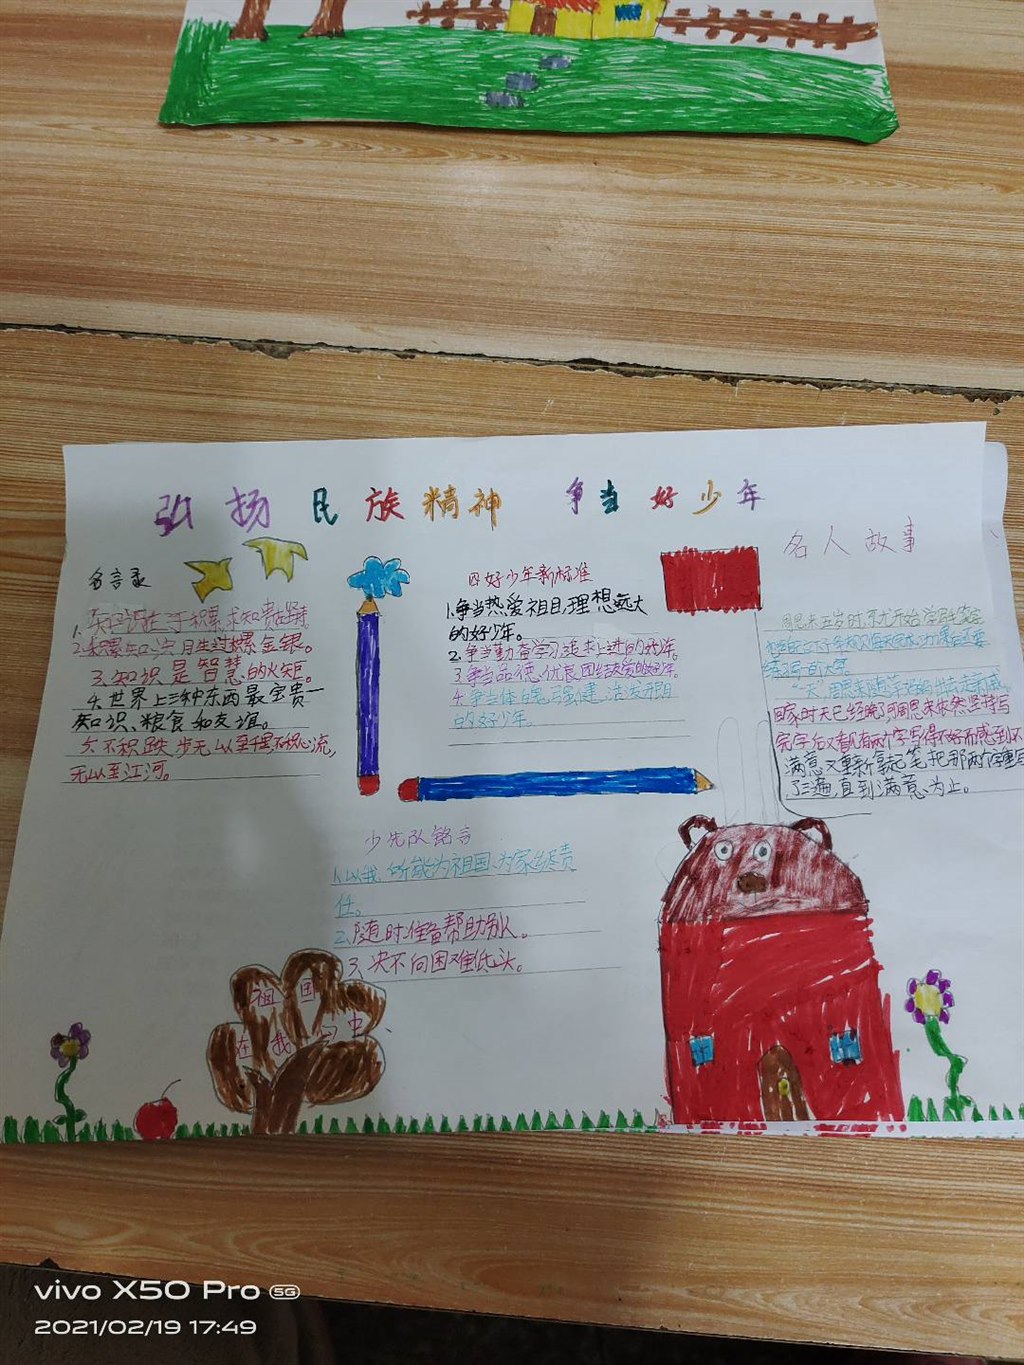 弘扬民族精神 争当好少年
名言录
1.知识在于积累,求知贵在坚持。
2.积累知识,胜过积累金银。
3.知识是智慧的火炬。
4.世界上三种东西最宝贵一
知识、粮食和友谊。
5.不积跬步无以至千里不积小流,
无以至江河。
四好少年新标准
1.争当热爱祖国,理想远大
的好少年。
2.争当勤奋学习追求上进的好少年。
3.争当品德优良团结友爱的好少年。
4.争当体魄强健、活泼开朗
的好少年。
名人故事
周恩来五岁时
练习
一天,周恩来随
回家时天已经晚了周恩来依然坚持写
完字后又看见有两个字写得不好而感到不
满意又重新拿起笔把那两个字重写
了三遍,直到满意为止。
少先队铭言
1.以我所能为祖国、为家乡尽责
任。
2.随时准备帮助别人。
3.决不向困难低头。
祖国
在我心中
vivo X50 Pro 5G
2021/02/19 17:49